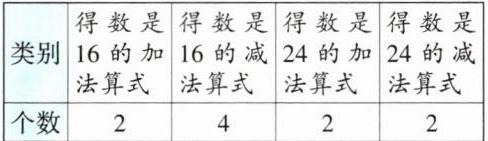 类别 得数是16的加法算式 得数是16的减法算式 得数是24的加法算式 得数是24的减法算式
个数 2 4 2 2